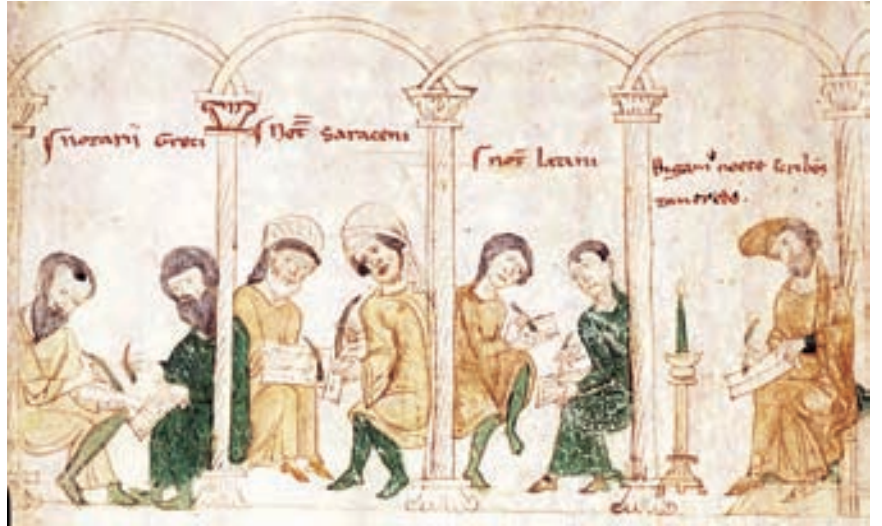 Notarii Greci
Not̄ Saraceni
Not̄ Latini
nocte scribēs
tancredo.